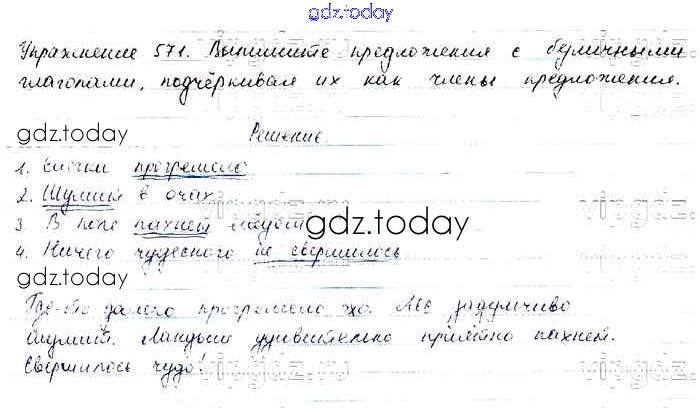 gdz.today
Упражнение 571. Выпишите предложения с безличными
глаголами, подчёркивая их как члены предложения.
gdz.today
Решение.
1. прогремело
2. Шумит в ушах
3. В поле пахнет мёдом
gdz.today
4. Ничего чудесного не свершилось
gdz.today
Где-то далеко прогремело эхо. Лес задумчиво
шумит. Ландыш удивительно приятно пахнет.
Свершилось чудо!